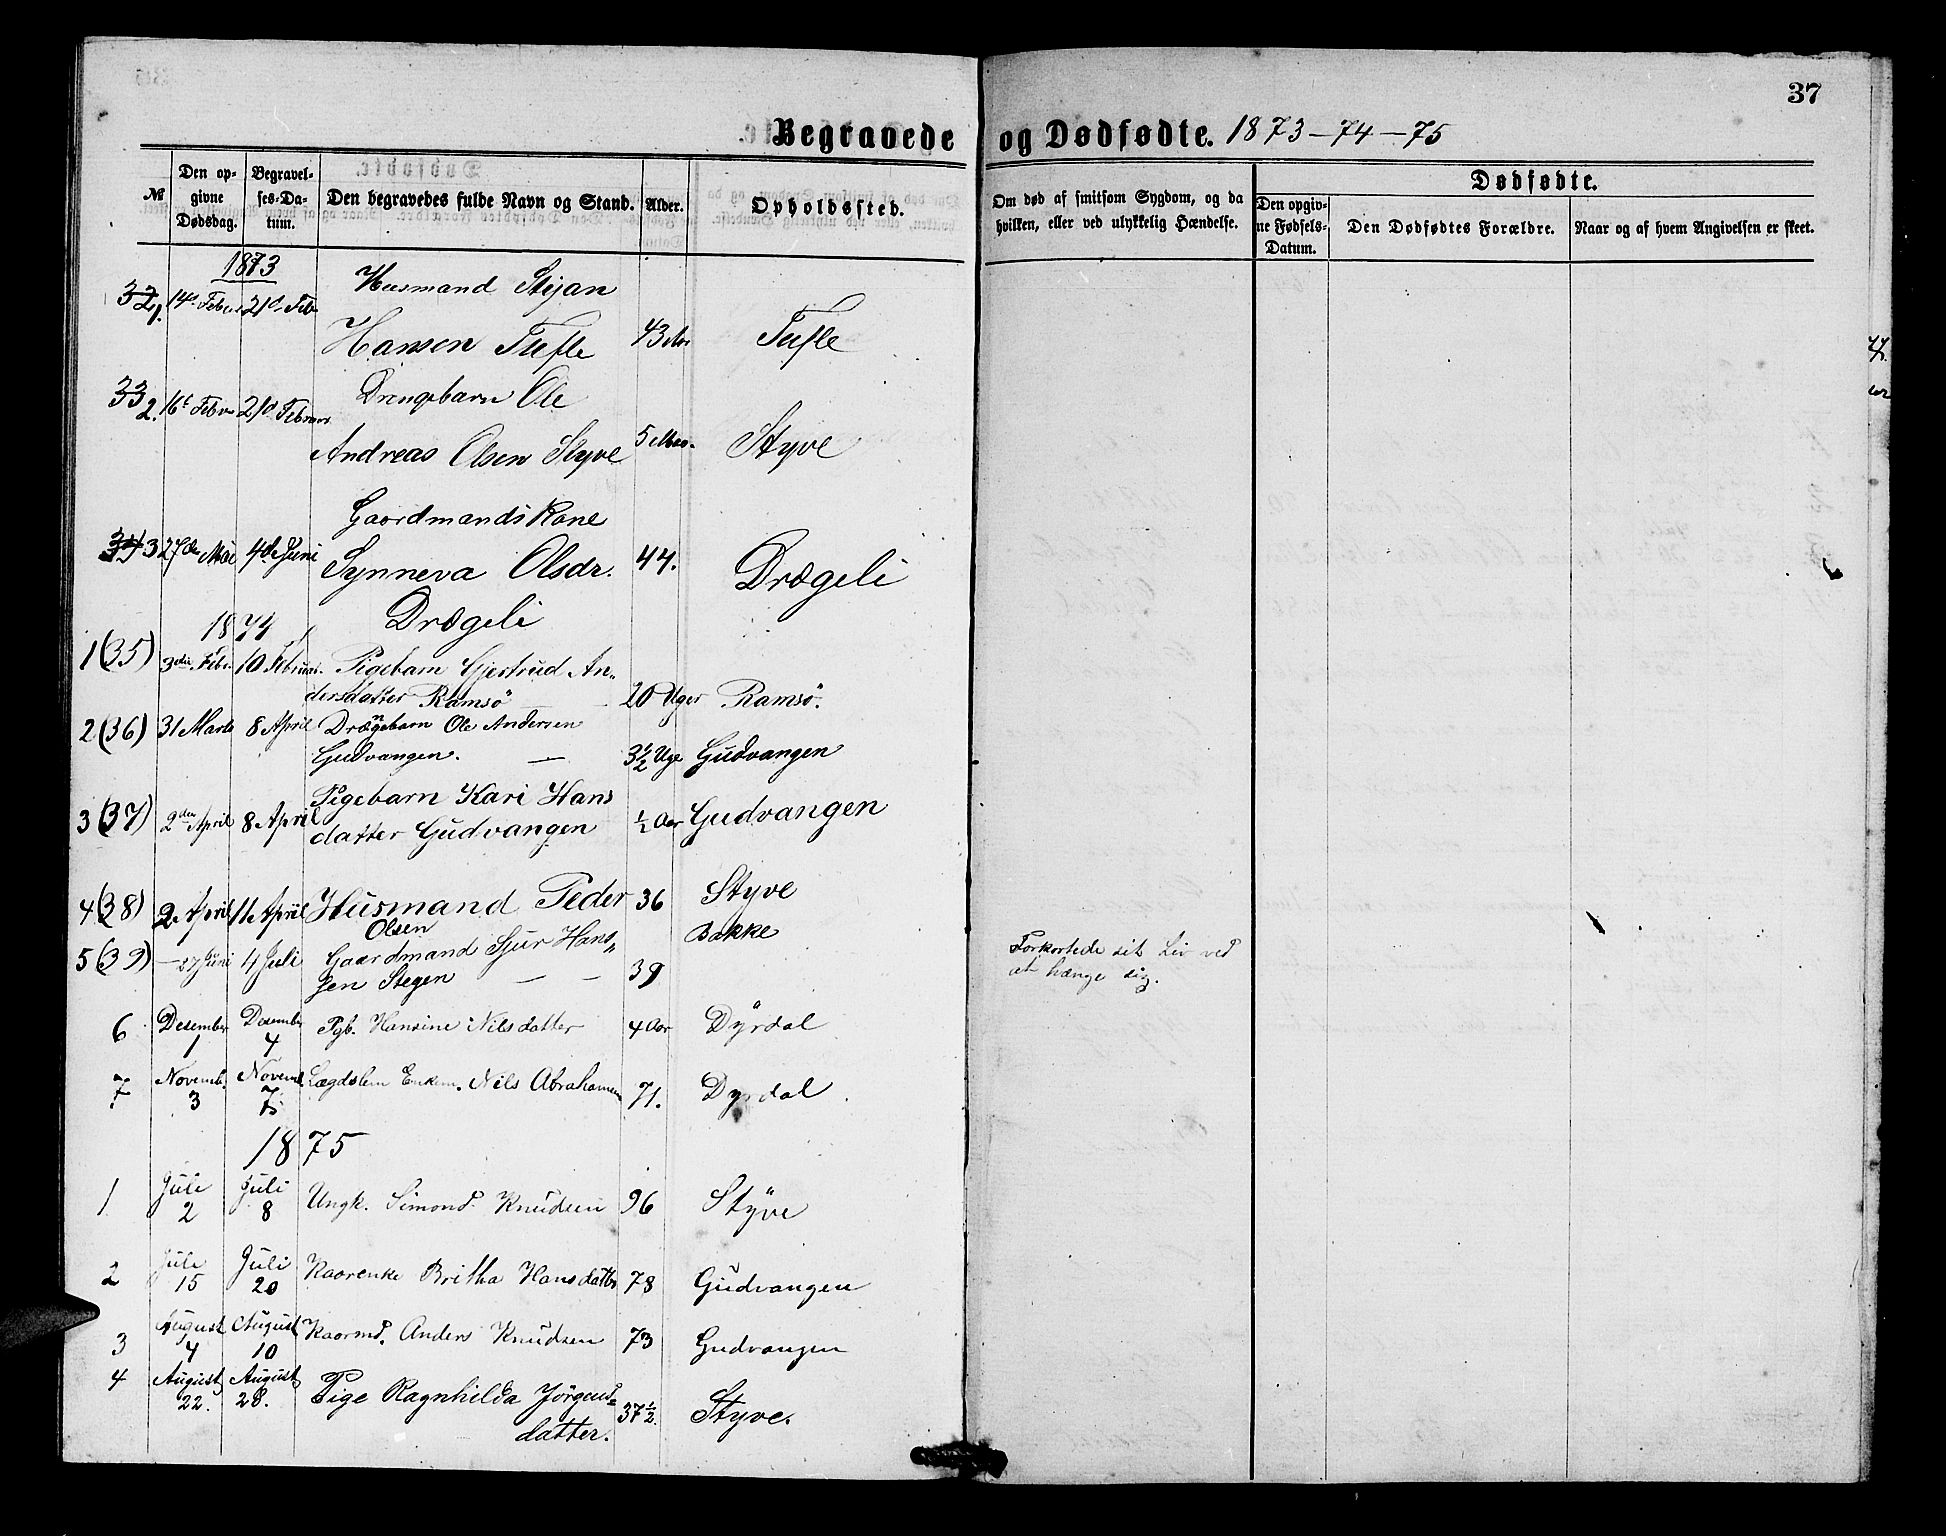 37
Begravede og Dødfødte. 1873-74-75
№ Den opgivne Dødsdag. Begravelses-Datum. Den begravedes fulde Navn og Stand. Alder. Opholdssted. Om død af smitsom Sygdom, og da hvilken, eller ved ulykkelig Hændelse. Dødfødte. Den opgivne Fødsels-Datum. Den Dødfødtes Forældre. Naar og af hvem Angivelsen er skeet.
1873
32 1. 14de Febr 21de Feb Husmand Stijan
Hansen Tufte 43 Aar Tufte
33 2. 16de Febr 21de Februar Drengebarn Ole
Andreas Olsen Styve 5 Mao. Styve
34 3 27de Mai 4de Juni Gaardmandskone
Synneva Olsdr. 44. Drægeli
Drægeli
1874
1 (35) 3die Febr. 10 Februar. Pigebarn Gjertrud An„
dersdatter Ramsö 20 Uger Ramsö.
2 (36) 31 Marts 8 April Drængebarn Ole Andersen
Gudvangen. — 3½ Uge Gudvangen
3 (37) 2den April 8 April Pigebarn Kari Hans
datter Gudvangen ½ Aar Gudvangen
4 (38) 2de April 11te April Husmand Peder 36 Styve
Olsen Bakke
5 (39) — 27 Juni 4 Juli Gaardmand Sjur Han„
sen Stegen — — 39 Forkortede sit Liv ved
at hænge sig.
6 Desember 1 Desember 4 Pgb. Hansine Nilsdatter 4 Aar Dÿrdal
7 Novemb. 3 Novemb. 7 Lægdslem Enkem. Nils Abrahamsen 71. Dyrdal.
1875
1 Juli 2 Juli 8 Ungk. Simond Knudsen 96 Stÿve
2 Juli 15 Juli 20 Kaarenke Britha Hansdatter 78 Gudvangen
3 August 4 August 10 Kaarmd. Anders Knudsen 73 Gudvangen
4 August 22. August 28. Pige Ragnhilda Jörgens=
datter. 37½. Styve.